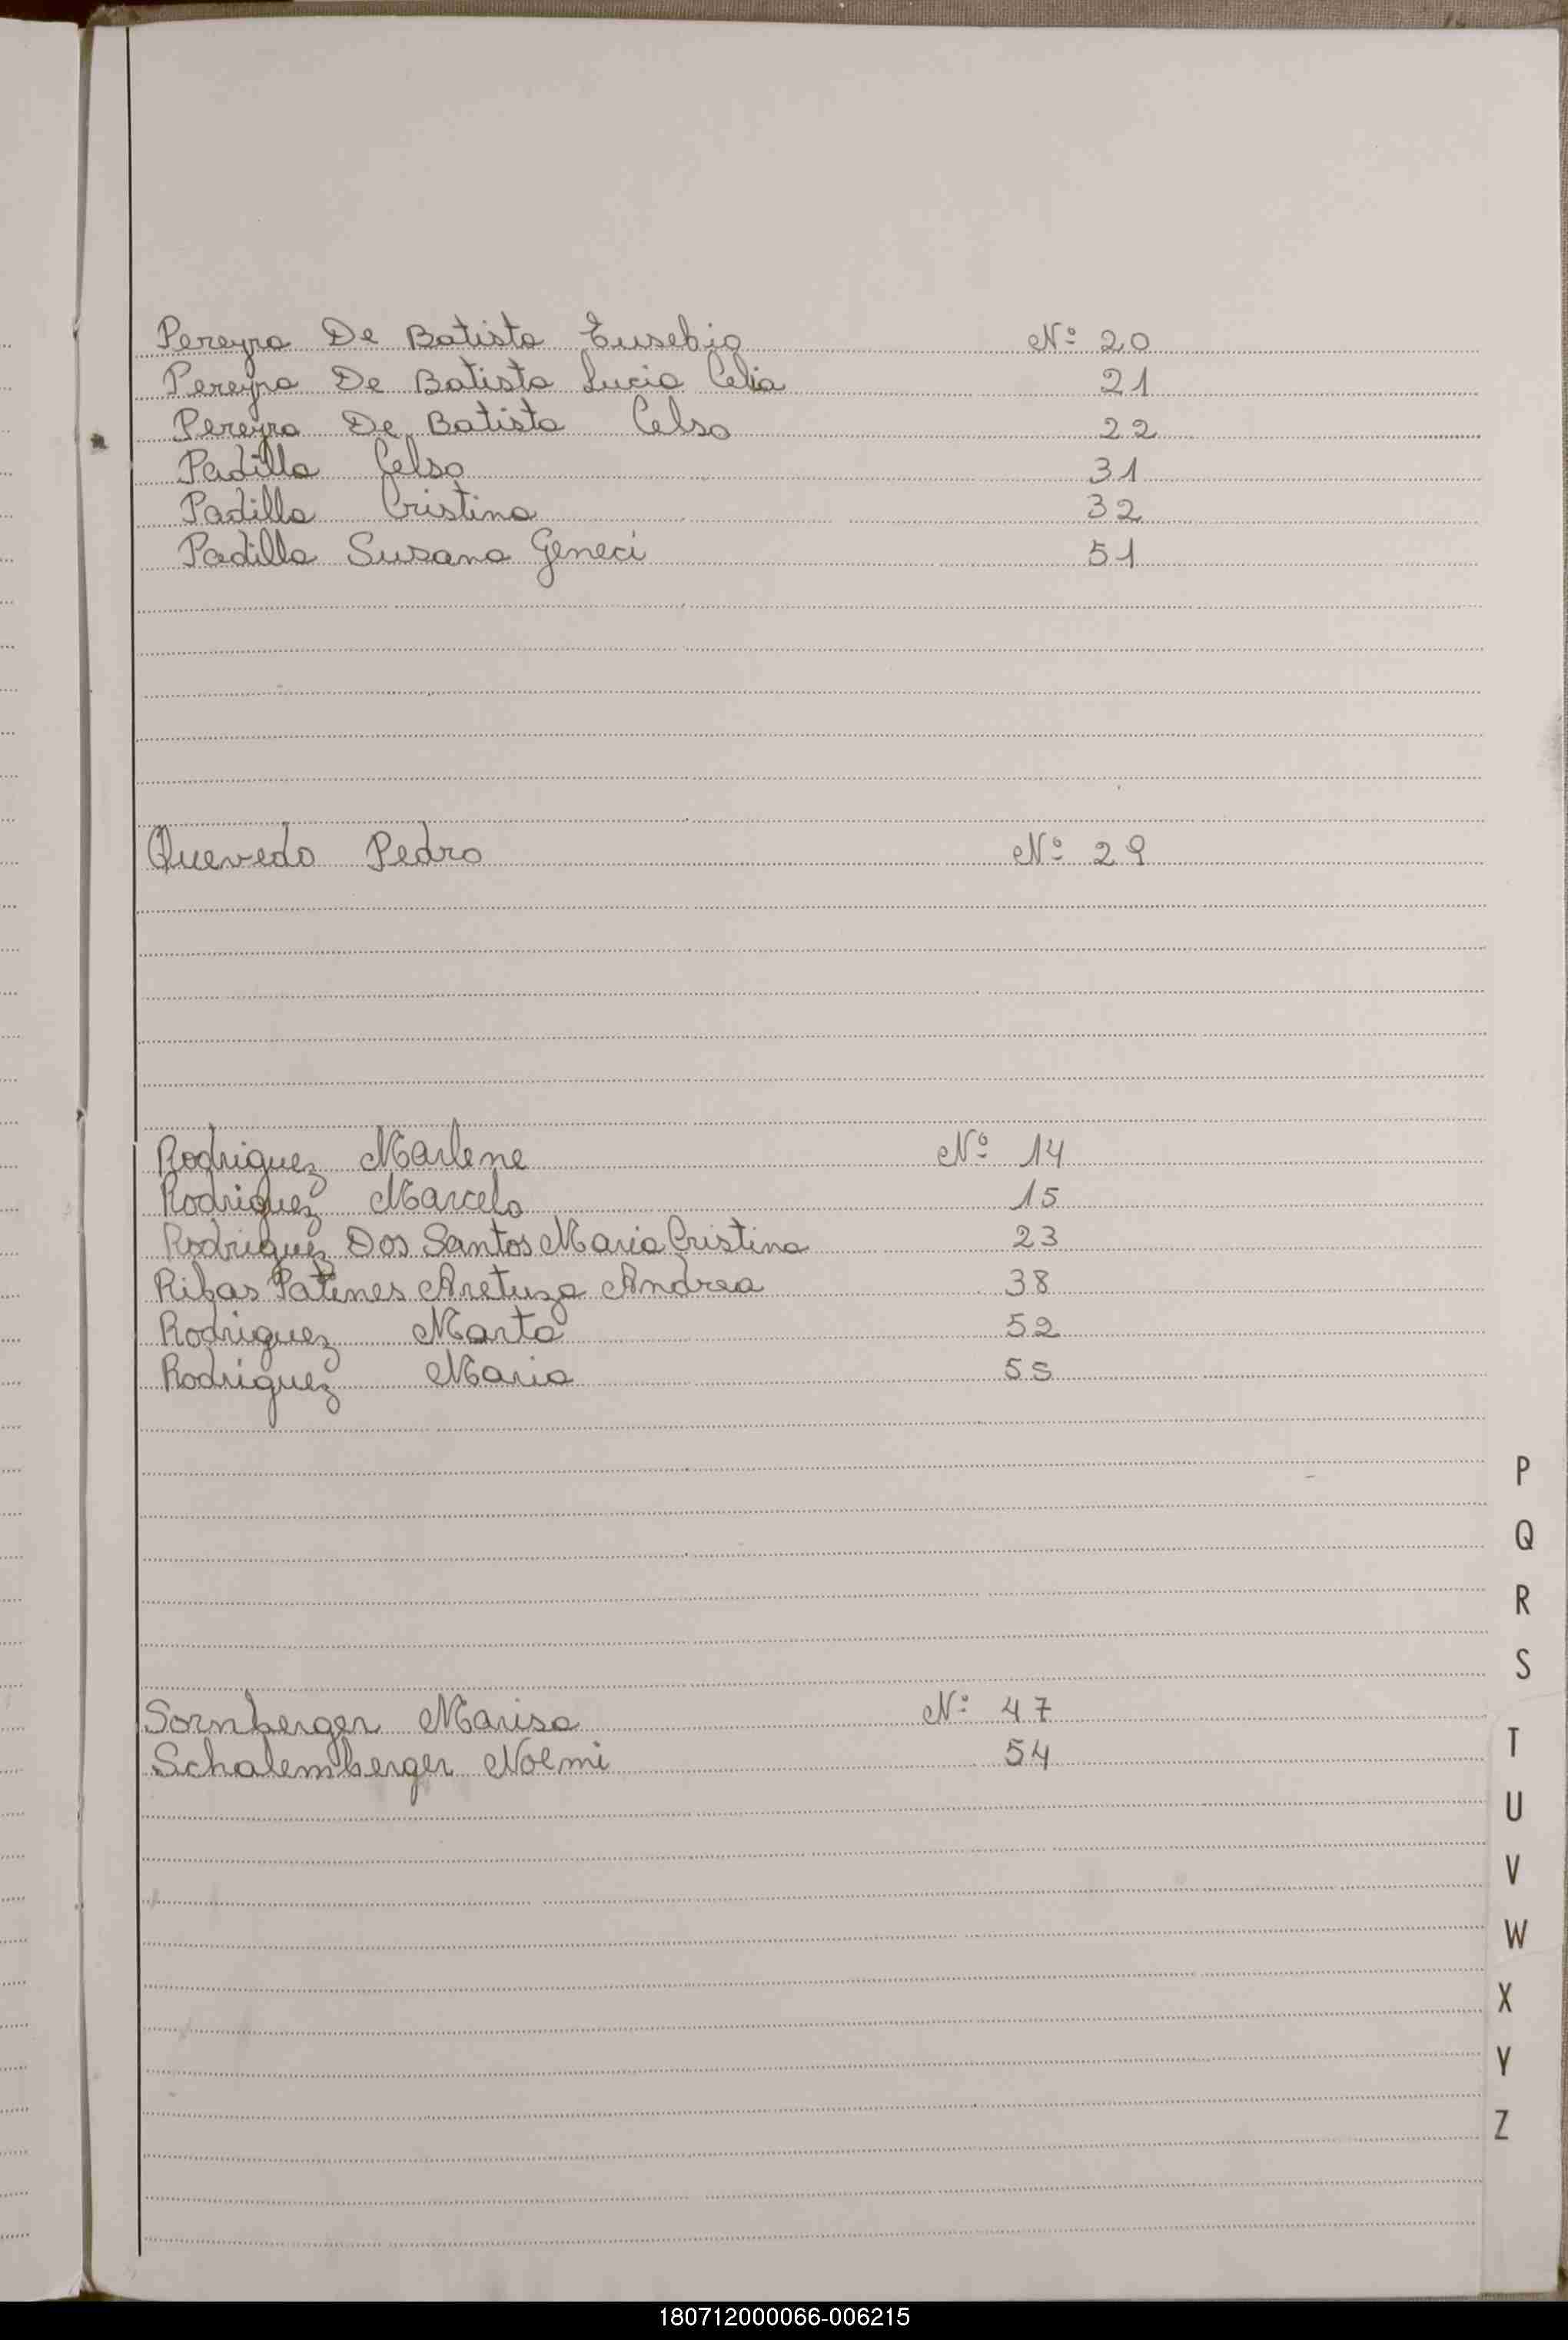 Pereyra De Batista Eusebio Nº 20
Pereyra De Batista Lucia Celia 21
Pereyra De Batista Celso 22
Padilla Celso 31
Padilla Cristina 32
Padilla Susana Geneci 51
Quevedo Pedro Nº 29
Rodriguez Marlene Nº 14
Rodriguez Marcelo 15
Rodriguez Dos Santos Maria Cristina 23
Ribas Patenes Aretuza Andrea 38
Rodriguez Marta 52
Rodriguez Maria 55
P
Q
R
S
Sornberger Marisa Nº 47
T
Schalemberger Noemi 54
U
V
W
X
Y
Z
180712000066-006215